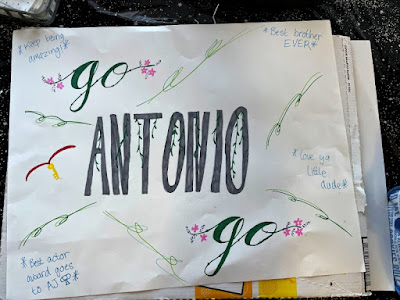 *Keep being
amazing!*
*Best brother
EVER*
go
ANTONIO
*love ya
little
dude*
go
*Best actor
award goes
to AJ